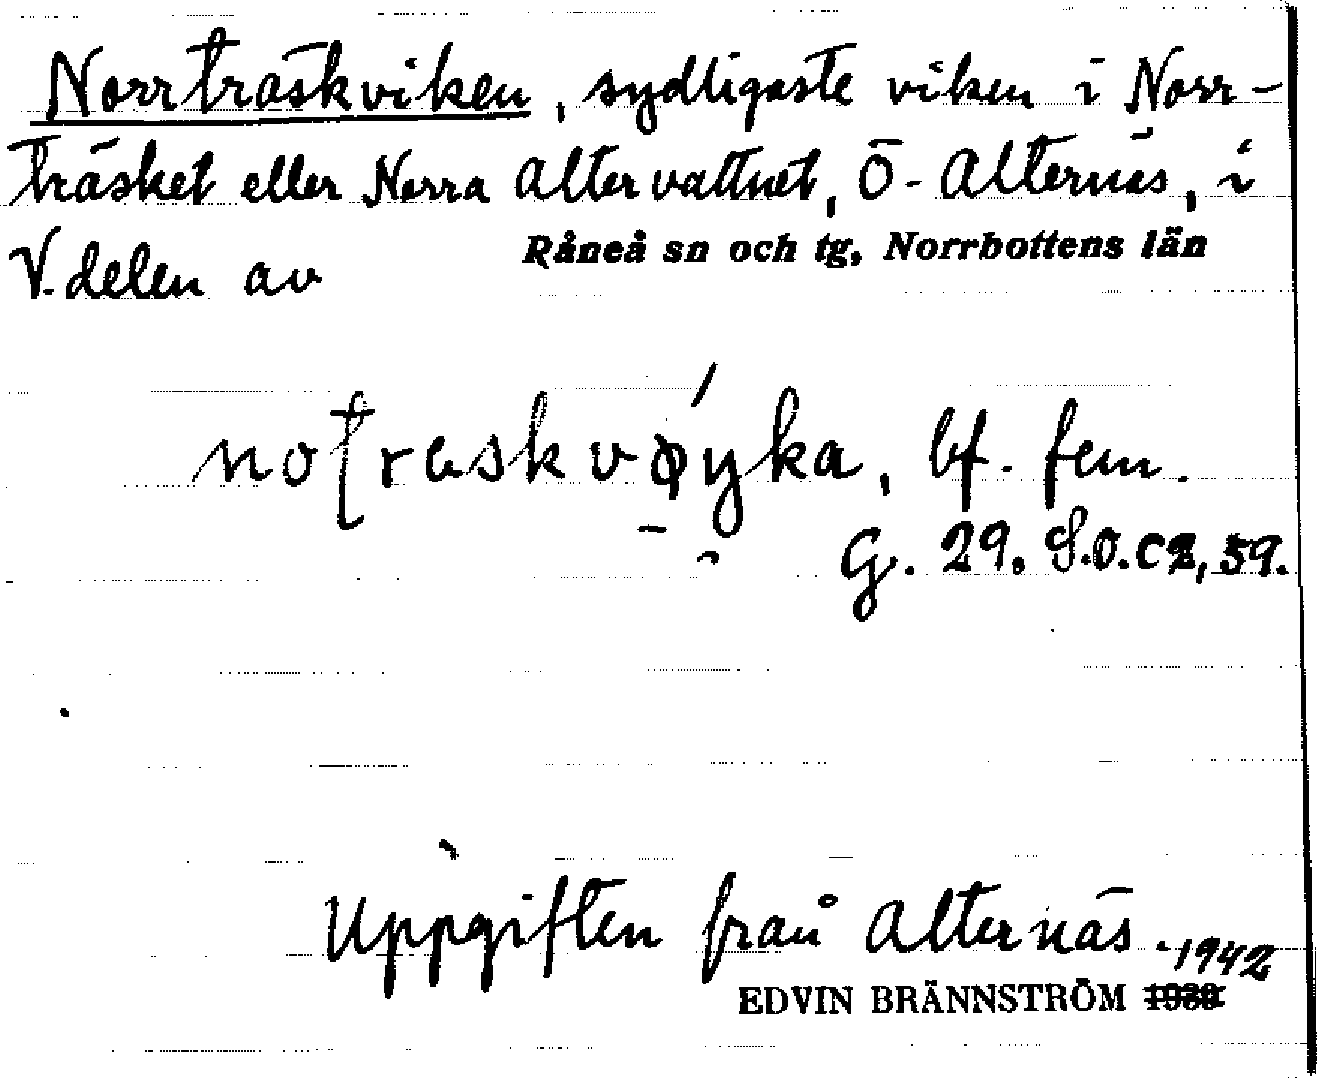 Norrträskviken, sydligaste viken i Norr-
träsket eller Norra Altervattnet, Ö-Alternäs, i
V. delen av Råneå sn och tg, Norrbottens län
bf. fem.
G. 29. S.O. C2, 59.
Uppgiften från Alternäs. 1942
EDVIN BRÄNNSTRÖM 1930